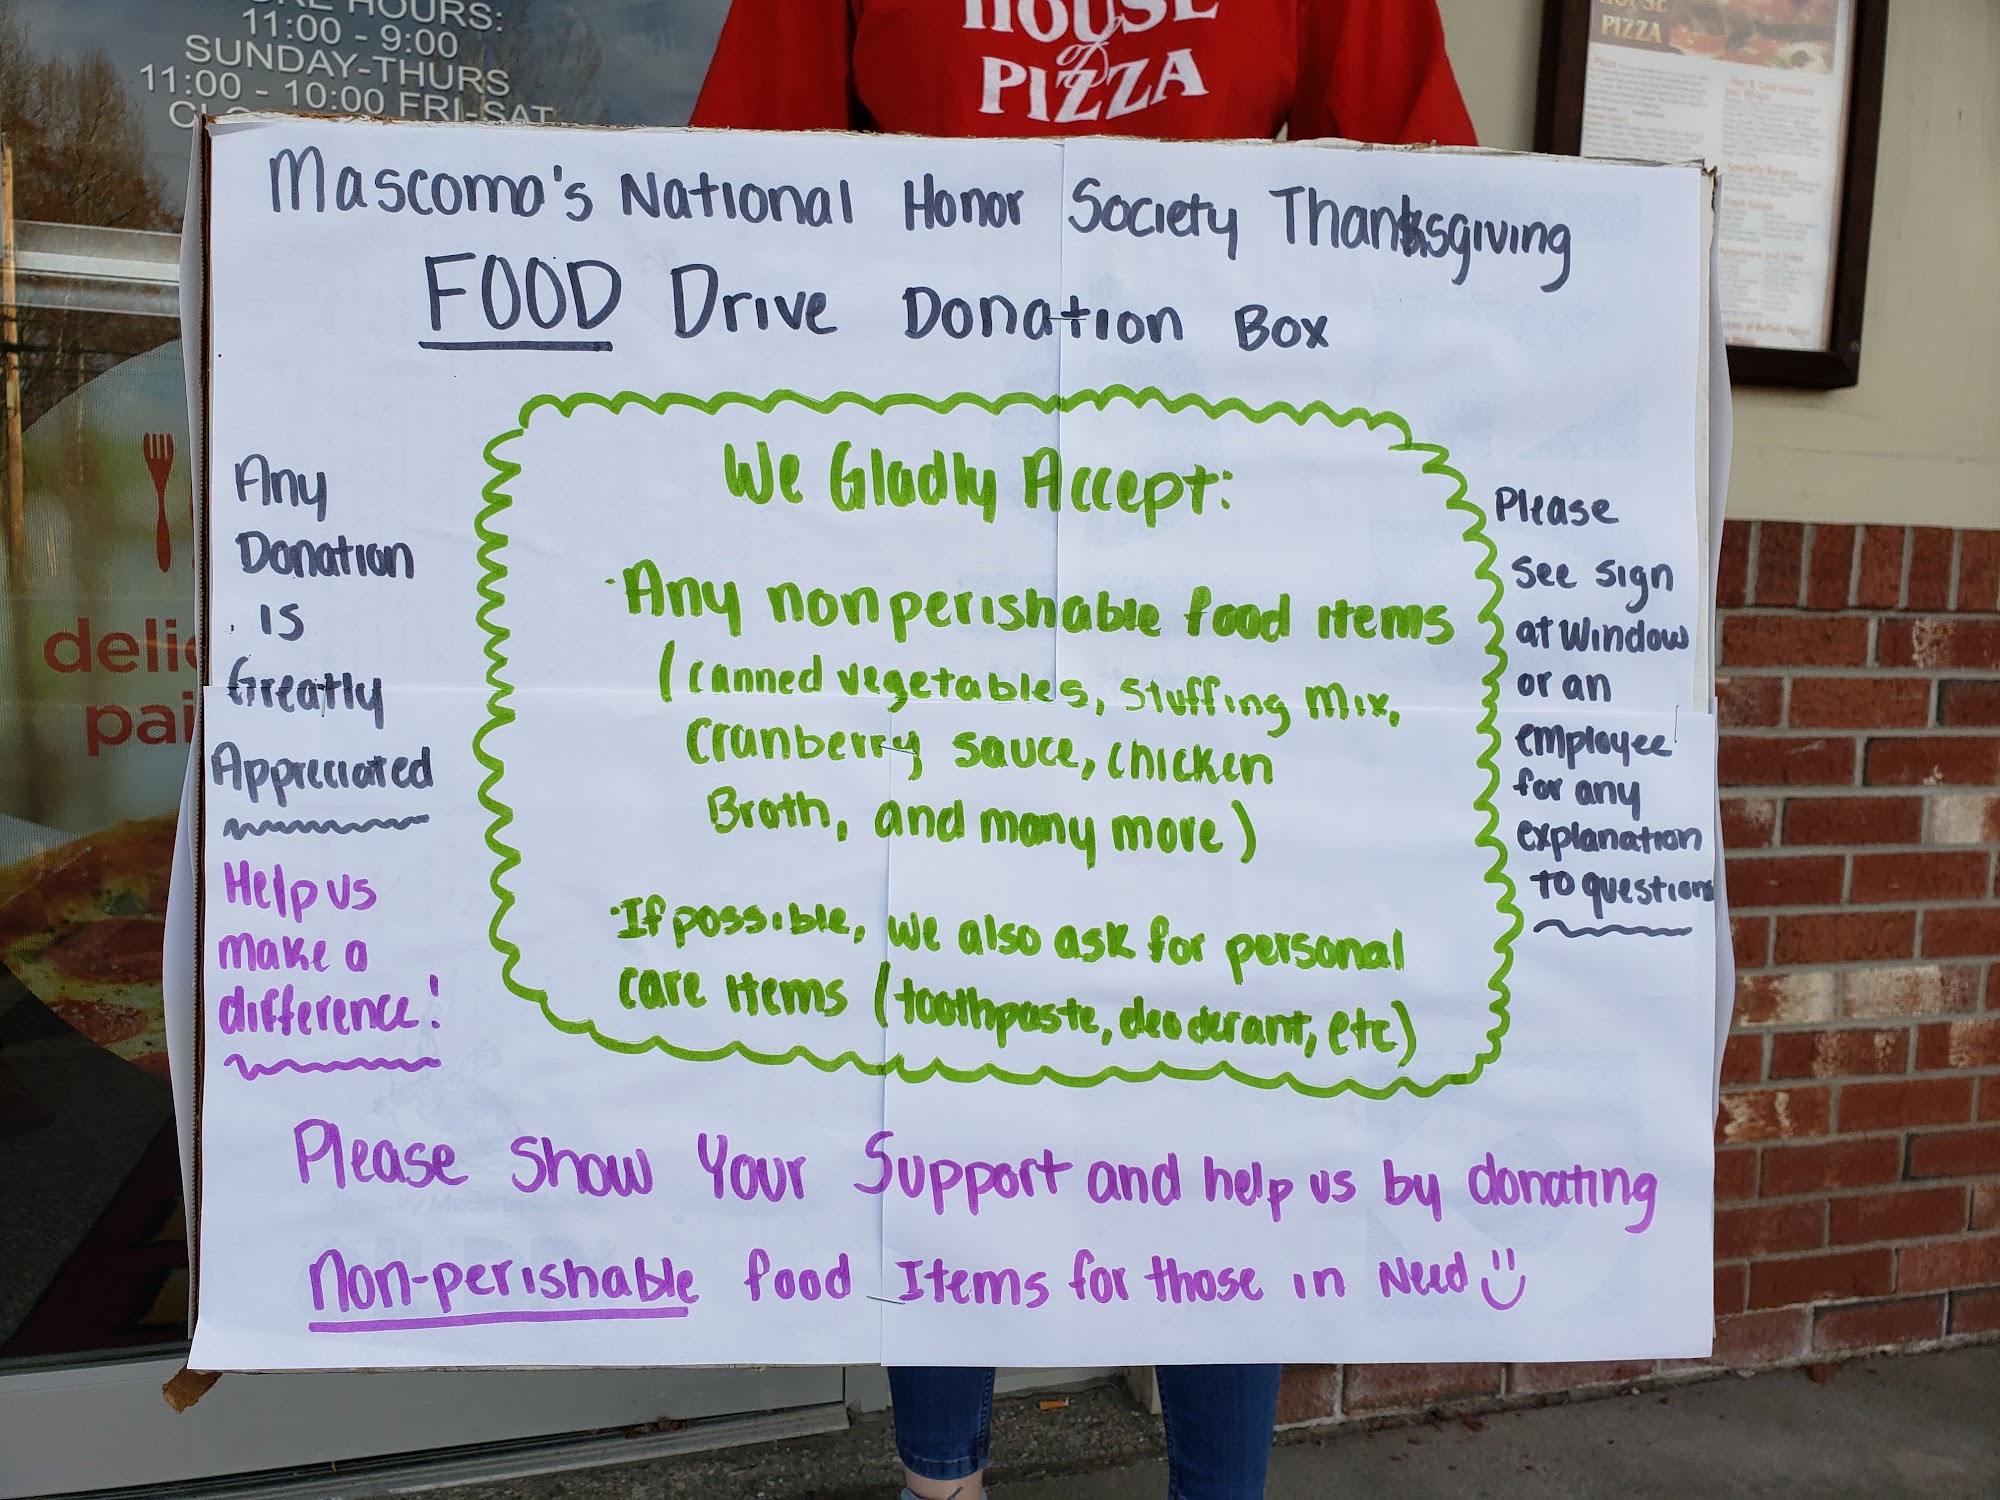 HOURS:
11:00 - 9:00
SUNDAY-THURS
11:00 - 10:00 FRI-SAT
HOUSE
of
PIZZA
HOUSE
PIZZA
Mascoma's National Honor Society Thanksgiving
FOOD Drive Donation Box
Any
Donation
is
Greatly
Appreciated
Help us
make a
difference!
We Gladly Accept:
·Any nonperishable food items
(canned vegetables, stuffing mix,
Cranberry sauce, chicken
Broth, and many more)
·If possible, we also ask for personal
care items (toothpaste, deoderant, etc)
Please
see sign
at window
or an
employee
for any
explanation
to questions
Please show Your Support and help us by donating
Non-perishable food Items for those in Need